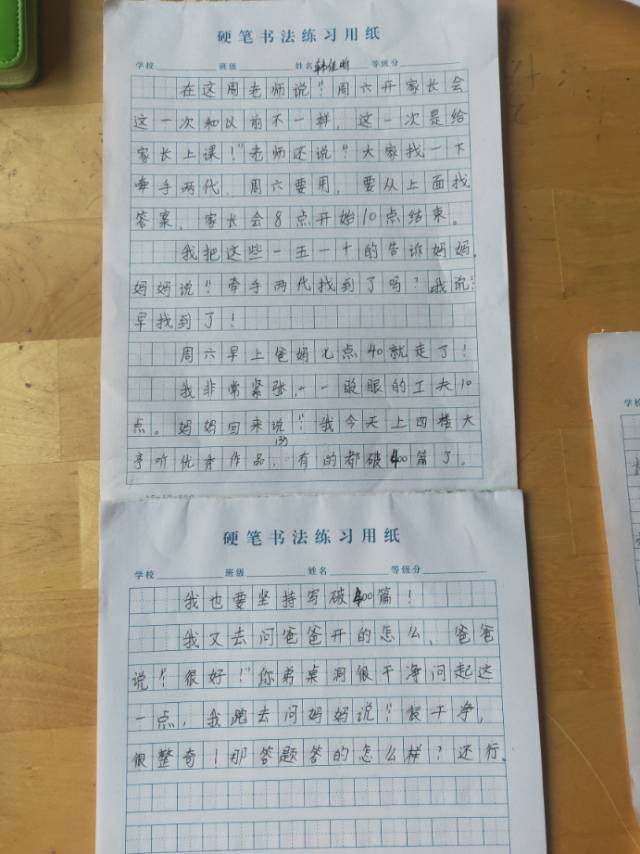 硬笔书法练习用纸
学校 班级 姓名 等级分
在这周老师说："周六开家长会
这一次和以前不一样，这一次是给
家长上课！"老师还说："大家找一下
牵手两代，周六要用，要从上面找
答案，家长会8点开始10点结束。
我把这些一五一十的告诉妈妈，
妈妈说："牵手两代找到了吗？我说：
早找到了！
周六早上爸妈七点40就走了！
我非常紧张，一眨眼的工夫10
点。妈妈回来说："我今天上四楼大
厅听优秀作品，有的都破400篇了。
硬笔书法练习用纸
学校 班级 姓名 等级分
我也要坚持写破400篇！
我又去问爸爸开的怎么，爸爸
说："很好！"你弟桌洞很干净问起这
一点，我跑去问妈妈说："很干净，
很整奇！那答题答的怎么样？还行，
学校